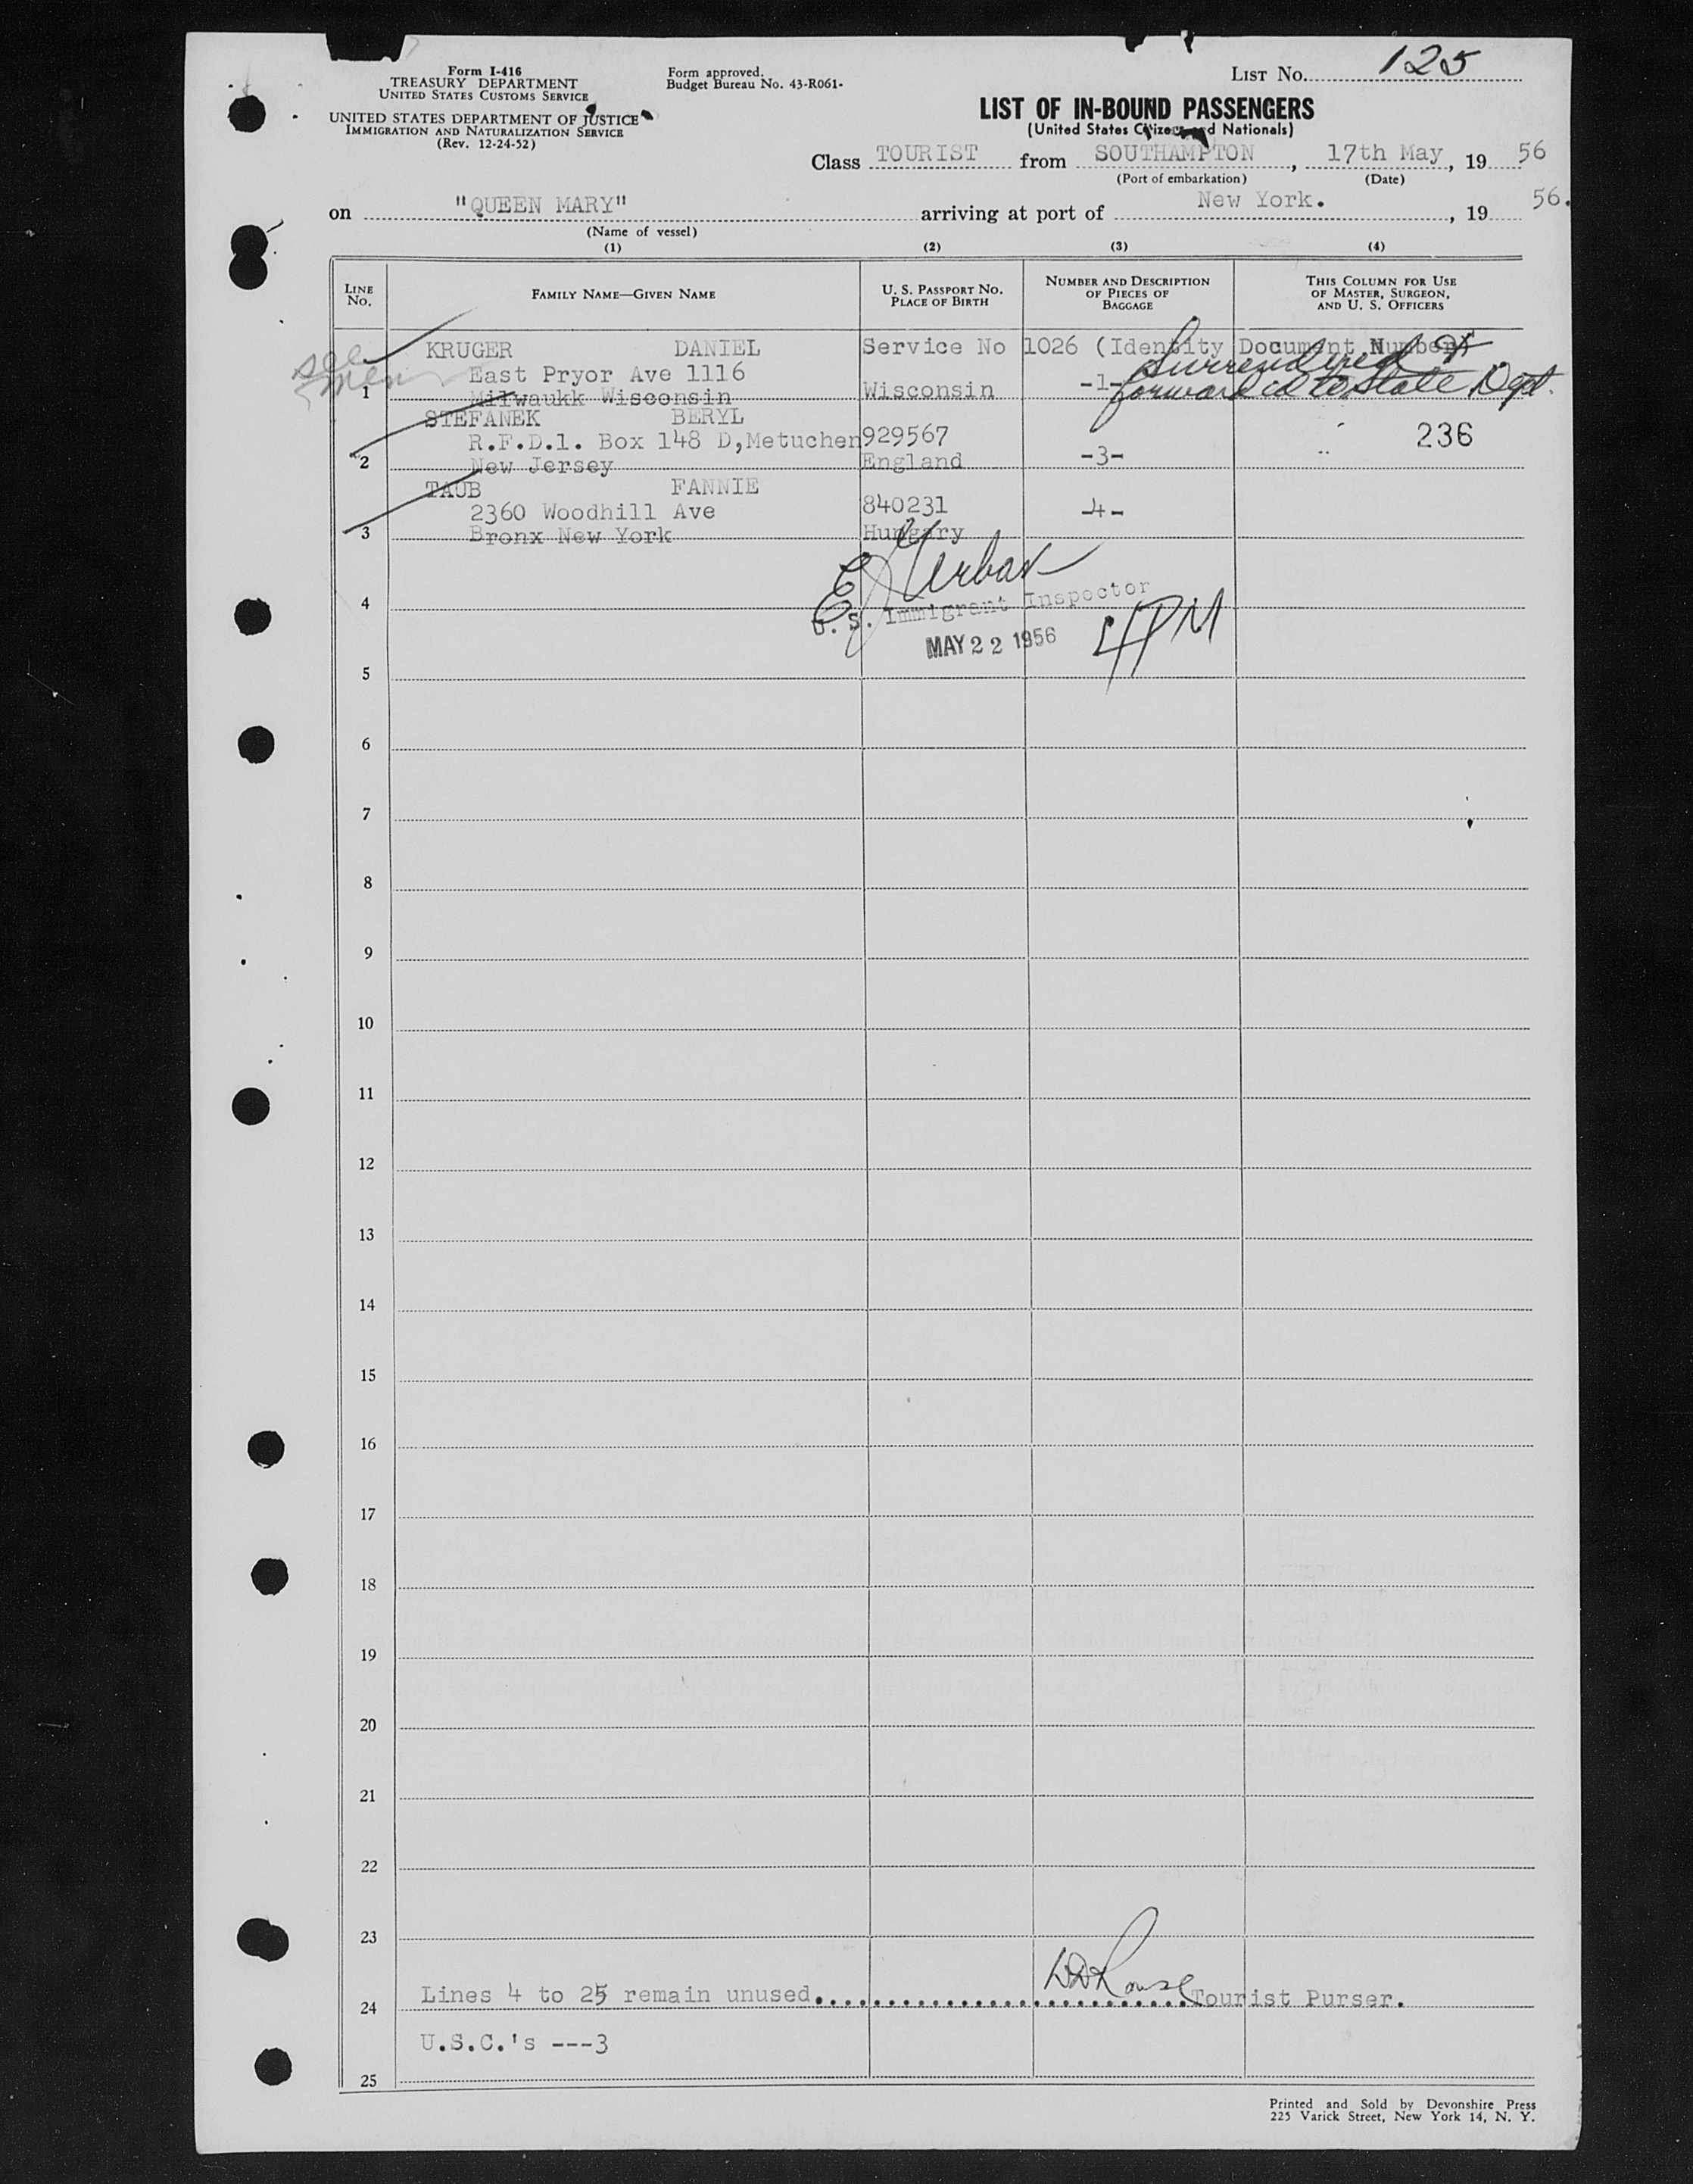 Form I-416
TREASURY DEPARTMENT
UNITED STATES CUSTOMS SERVICE
UNITED STATES DEPARTMENT OF JUSTICE
IMMIGRATION AND NATURALIZATION SERVICE
(Rev. 12-24-52)
Form approved.
Budget Bureau No. 43-R061-
LIST NO. 125
LIST OF IN-BOUND PASSENGERS
(United States Citizens and Nationals)
Class TOURIST from SOUTHAMPTON, 17th May, 19 56
(Port of embarkation) (Date)
on "QUEEN MARY" arriving at port of New York. , 19 56.
(Name of vessel)
(1) (2) (3) (4)
LINE NO. FAMILY NAME—GIVEN NAME U. S. PASSPORT NO. PLACE OF BIRTH NUMBER AND DESCRIPTION OF PIECES OF BAGGAGE THIS COLUMN FOR USE OF MASTER, SURGEON, AND U. S. OFFICERS
see
KRUGER DANIEL Service No 1026 (Identity Document Number)
Surrendered &
East Pryor Ave 1116
1 Milwaukk Wisconsin Wisconsin -1- forwarded to State Dept.
STEFANEK BERYL
R.F.D.1. Box 148 D,Metuchen 929567 236
2 New Jersey England -3-
TAUB FANNIE
2360 Woodhill Ave 840231 -4-
3 Bronx New York Hungary
E Urban
4
U. S. Immigrant Inspector
MAY 22 1956 4PM
5
6
7
8
9
10
11
12
13
14
15
16
17
18
19
20
21
22
23
24 Lines 4 to 25 remain unused. Rouse Tourist Purser.
U.S.C.'s ---3
25
Printed and Sold by Devonshire Press
225 Varick Street, New York 14, N. Y.